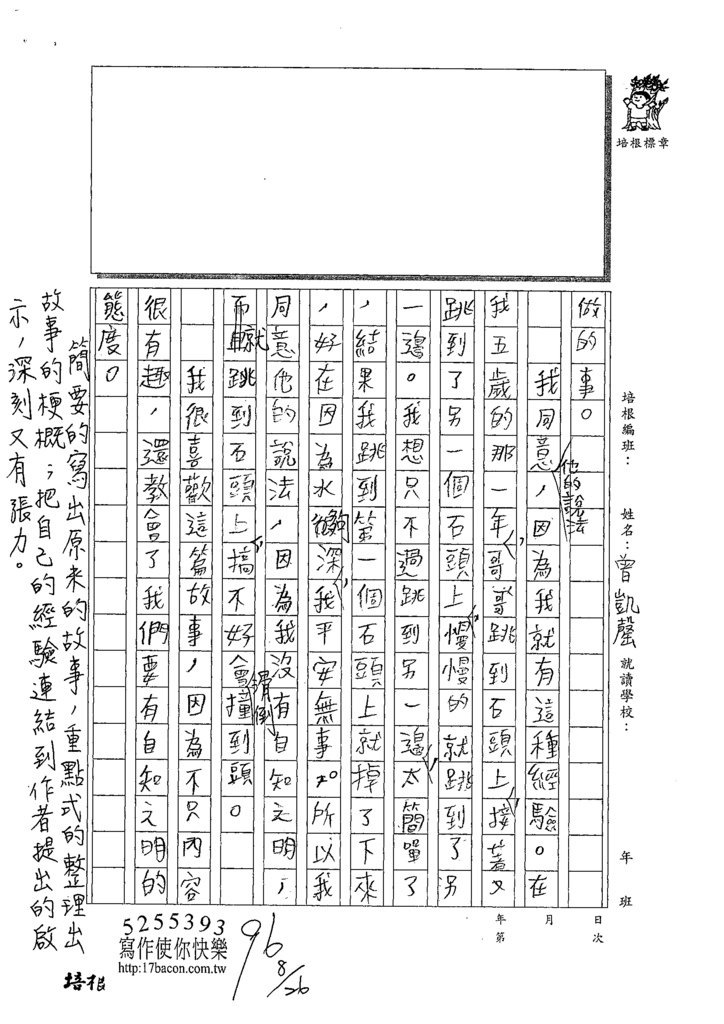 培根標章
培根編班：
姓名：曾凱馨
就讀學校：
年 班
做的事。
我同意他的說法，因為我就有這種經驗。在
我五歲的那一年，哥哥跳到石頭上，接著又
跳到了另一個石頭上，慢慢的就跳到了另
一邊。我想只不過跳到另一邊，太簡單了
，結果我跳到第一個石頭上就掉了下來
，好在因為水夠深，我平安無事。所以我
同意他的說法，因為我沒有自知之明，
就跳到石頭上，搞不好會滑倒，撞到頭。
我很喜歡這篇故事，因為不只內容
很有趣，還教會了我們要有自知之明的
態度。
簡要的寫出原來的故事，重點式的整理出
故事的梗概；把自己的經驗連結到作者提出的啟
示，深刻又有張力。
日 次
月
年 第
5255393
寫作使你快樂
http:17bacon.com.tw
96 8/26
培根